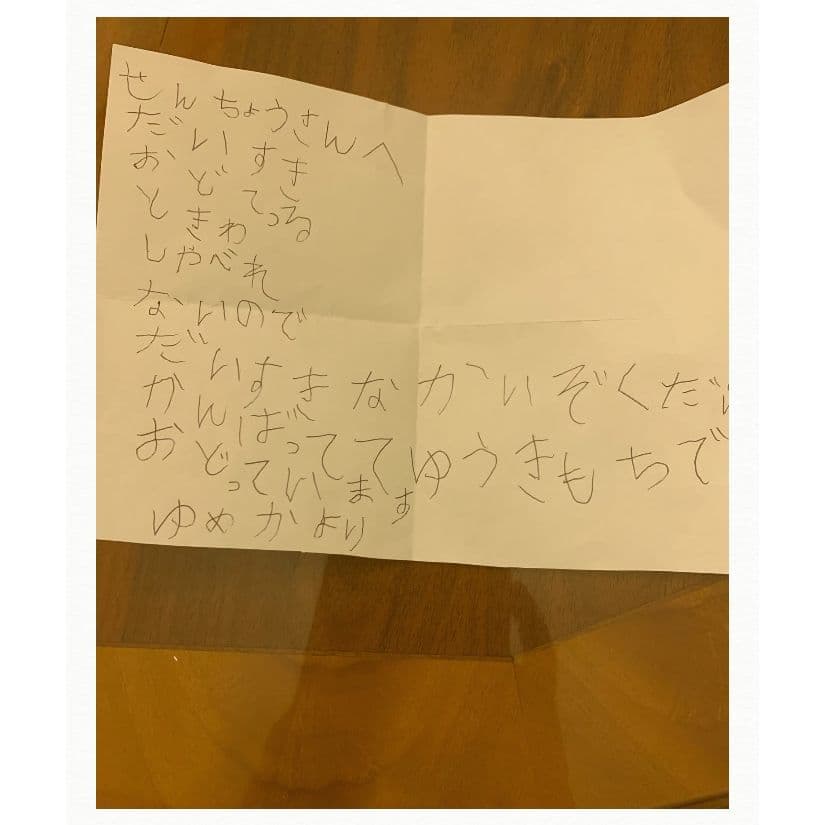 せんちょうさんへ
だいすき
おどてっる
ときわ
しゃべれ
ないので
だいすきなかいぞくだ
がんばってってゆうきもちで
おどっています
ゆめかより